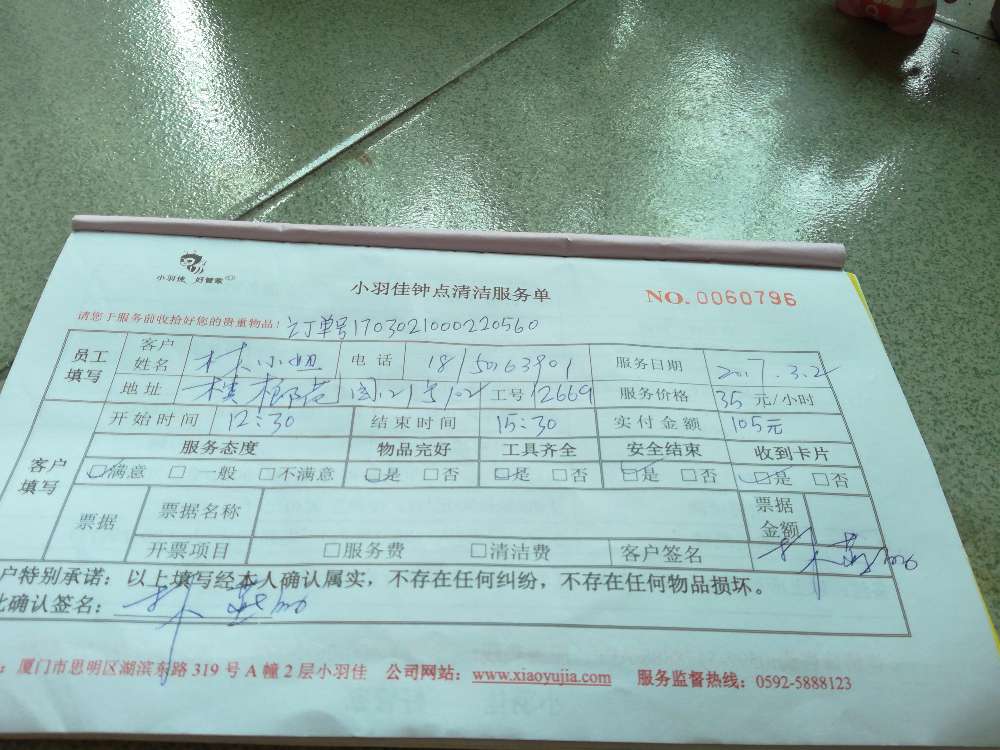 小羽佳 好管家
小羽佳钟点清洁服务单
NO. 0060796
请您于服务前收拾好您的贵重物品! 订单号1703021000220560
员工填写 客户姓名 林小姐 电话 服务日期 2017.3.2
地址 工号 12669 服务价格 35元/小时
客户填写 开始时间 12:30 结束时间 15:30 实付金额 105元
服务态度 物品完好 工具齐全 安全结束 收到卡片
☑满意 □一般 □不满意 ☑是 □否 ☑是 □否 ☑是 □否 ☑是 □否
票据 票据名称 票据金额
开票项目 □服务费 □清洁费 客户签名 林
户特别承诺：以上填写经本人确认属实，不存在任何纠纷，不存在任何物品损坏。
此确认签名： 林
：厦门市思明区湖滨东路 319 号 A 幢 2 层小羽佳 公司网站：www.xiaoyujia.com 服务监督热线：0592-5888123